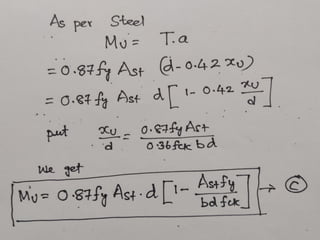 As per Steel
Mu = T.a
= 0.87 fy Ast (d - 0.42 xu)
= 0.87 fy Ast d [ 1 - 0.42 xu/d ]
put xu/d = 0.87 fy Ast / 0.36 fck bd
We get
Mu = 0.87 fy Ast . d [ 1 - Ast fy / bd fck ] → C